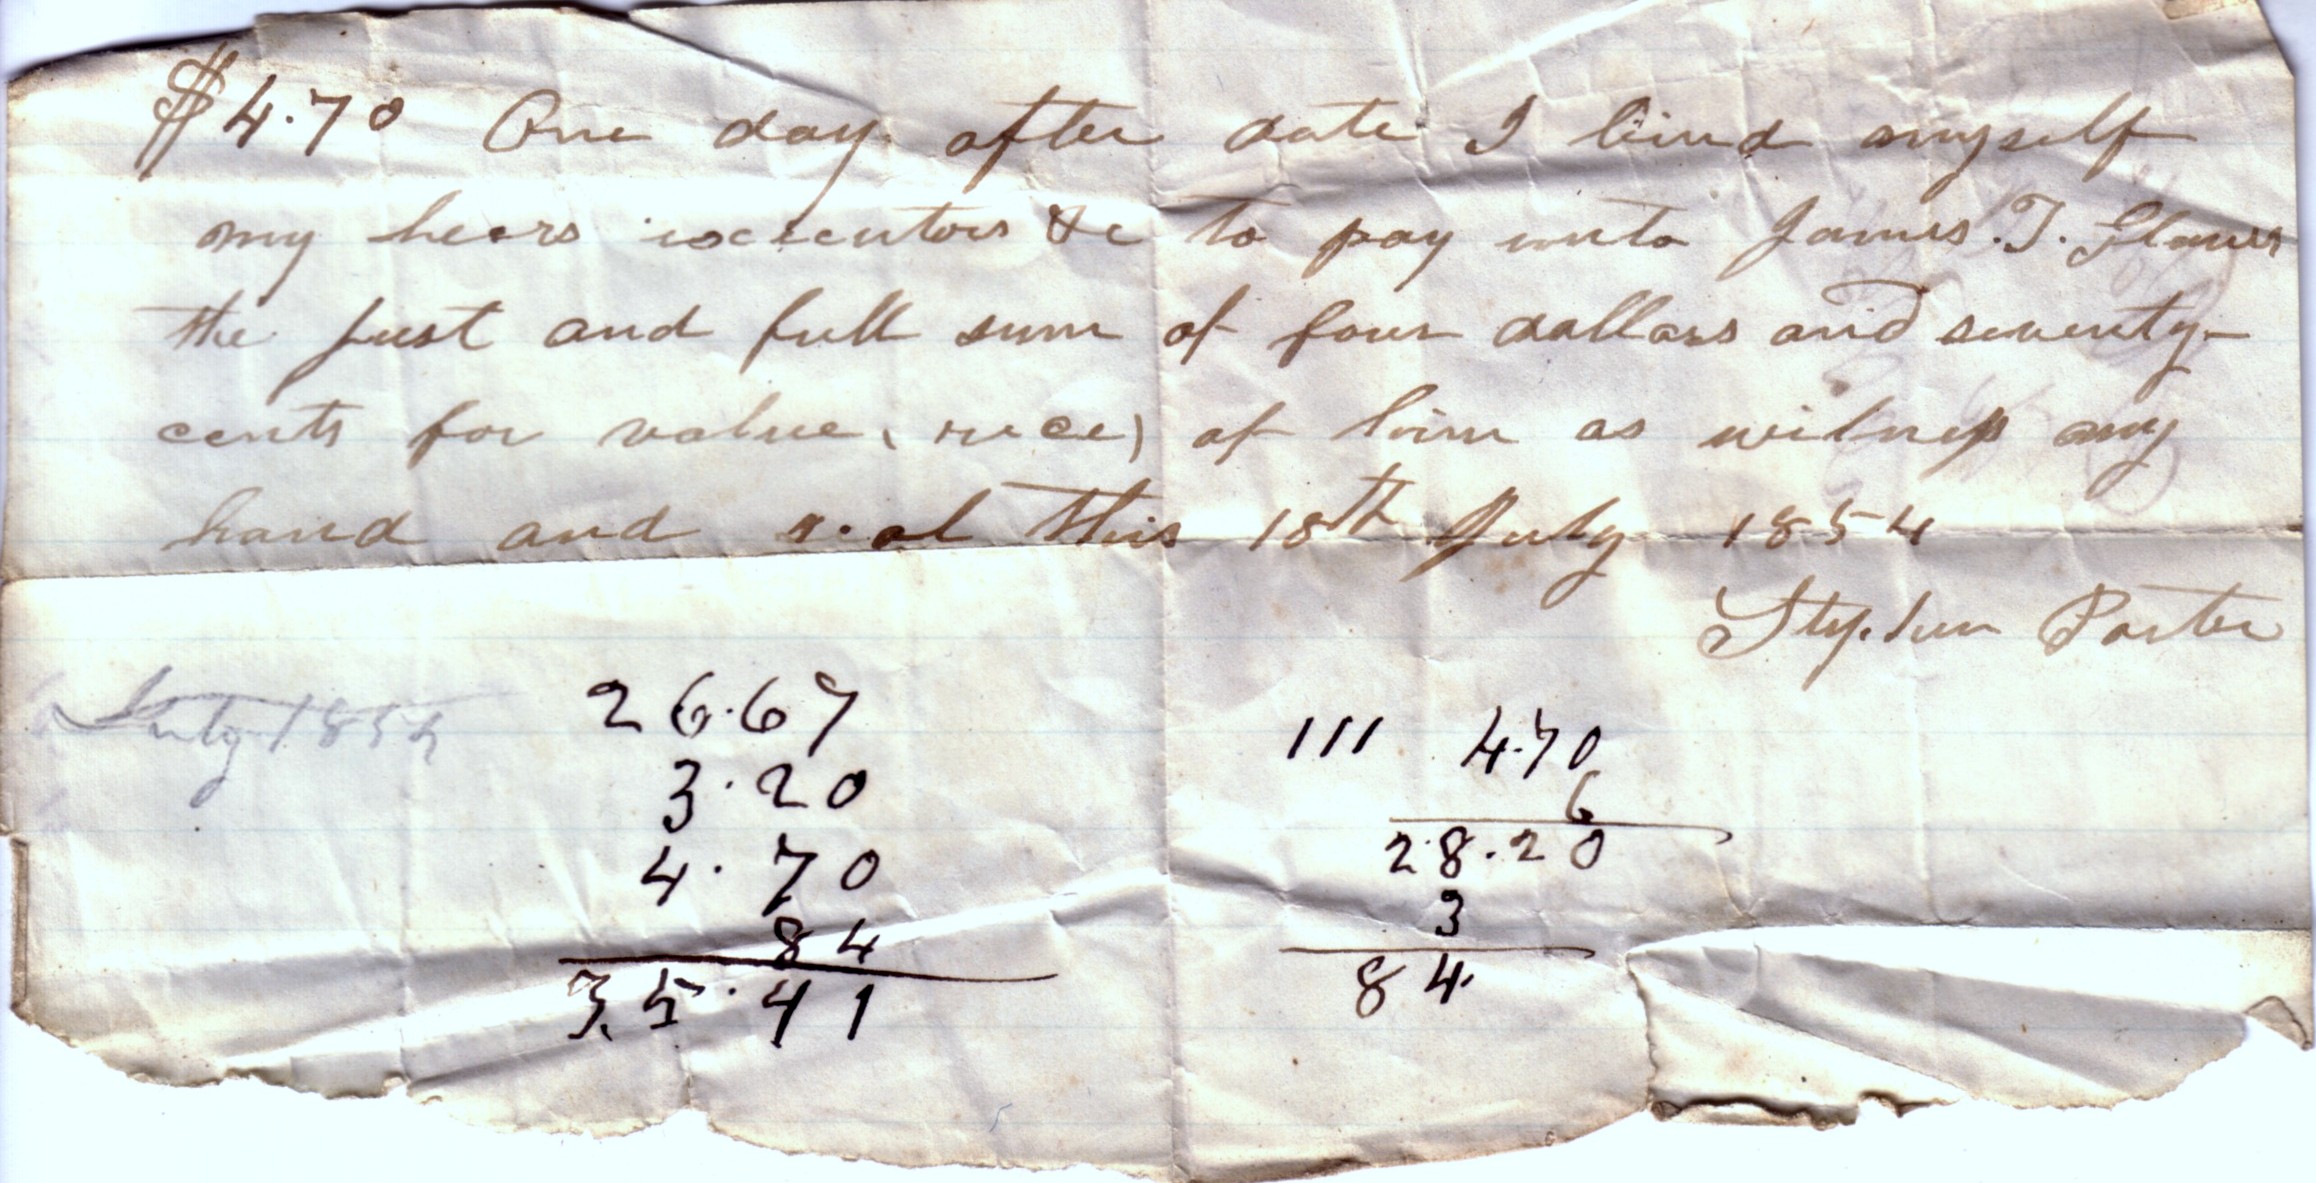 $4.70 One day after date I bind myself
my heors executors &c to pay unto James. T.
the just and full sum of four dollars and seventy-
cents for value, rece) of him as witness my
hand and seal this 18th July 1854
Stephen Porter
July 1854
26.67
3.20
4.70
84
35.41
111 4.70
6
28.20
3
84